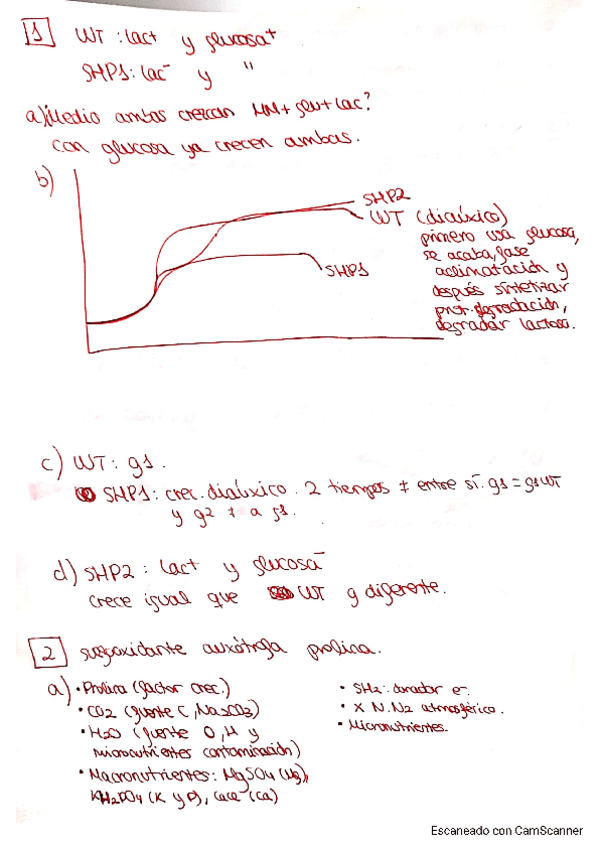 1 WT : lac+ y glucosa+
SHP1: lac- y "
a) ¿Medio ambas crezcan MM+glu+lac?
con glucosa ya crecen ambas.
b)
SHP2
WT (diaúxico)
primero usa glucosa,
se acaba, fase
aclimatación y
después sintetizar
prot. degradación,
degradar lactosa.
SHP1
c) WT: g1.
SHP1: crec. diaúxico. 2 tiempos ≠ entre sí. g1 = g1 WT
y g2 ≠ a g1.
d) SHP2 : lac+ y glucosa-
crece igual que WT g diferente.
2 auxótrofa prolina.
a) • Prolina (factor crec.)
• CO2 (fuente C, Na2CO3)
• H2O (fuente O, H y
micronutrientes contaminación)
• Macronutrientes: MgSO4 (Mg),
KH2PO4 (K y P), (Ca)
• SH2: donador e-.
• X N. N2 atmosférico.
• Micronutrientes.
Escaneado con CamScanner